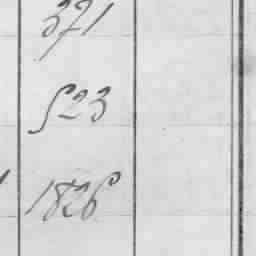 371
523
1826